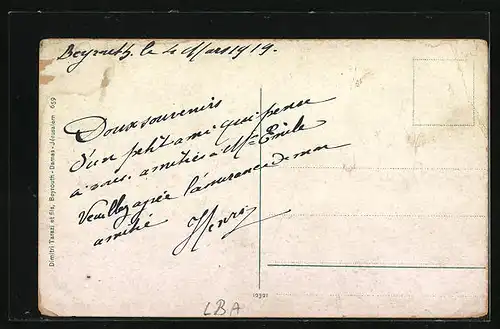 Beyrouth, le 4 Mars 1919.
Doux souvenirs
d'un petit ami qui pense
à vous. amitiés à Mr Emile
Veuillez agréer l'assurance de mon
amitié
Henri
Dimitri Tarazi et fils, Beyrouth-Damas-Jérusalem 659
10301
LBA